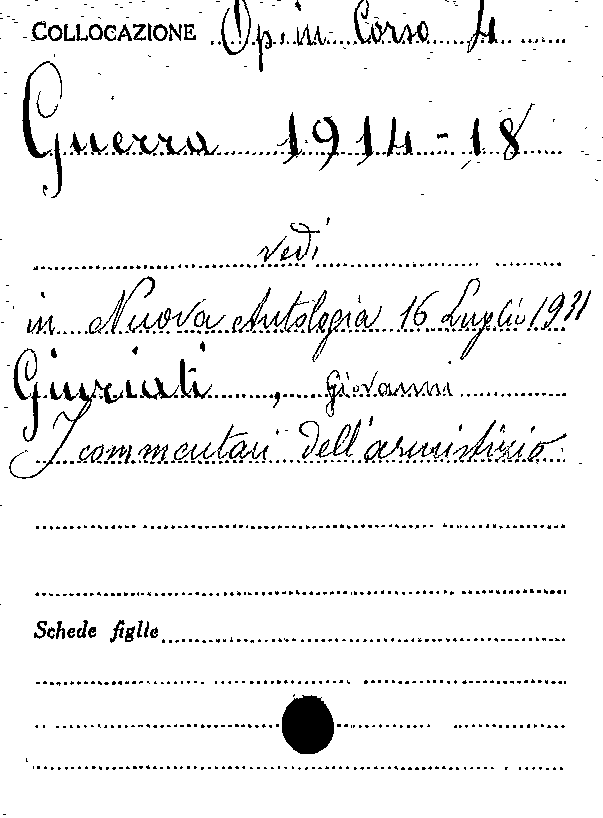 COLLOCAZIONE Op. in Corso 4
Guerra 1914-18
vedi
in Nuova Antologia 16 Luglio 1931
Giuriati, Giovanni
I commentari dell'armistizio
Schede figlie